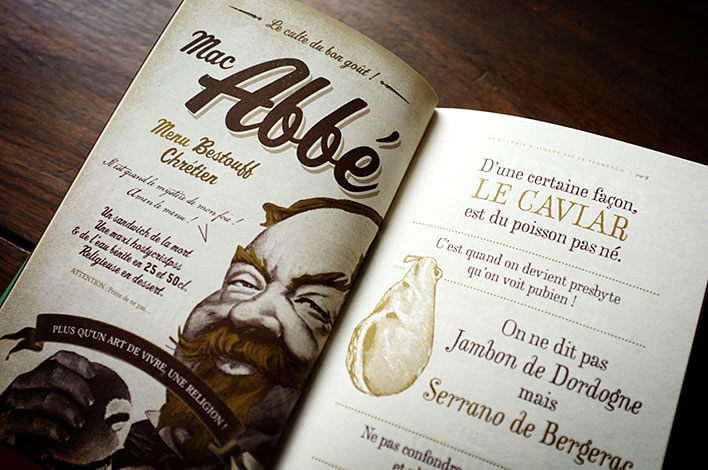 Le culte du bon goût !
Mac
Abbé
Menu Bestouff
Chretien
Il est grand le mystère de mon foie !
Amen le menu !
Un sandwich de la mort
Une maxi hostycristpss
& de l'eau bénite en 25 et 50cl.
Religieuse en dessert.
ATTENTION : Prière de ne pas...
PLUS QU'UN ART DE VIVRE, UNE RELIGION !
N'AIMENT PAS LE FLAMENCO
D'une certaine façon,
LE CAVIAR
est du poisson pas né.
C'est quand on devient presbyte
qu'on voit pubien !
On ne dit pas
Jambon de Dordogne
mais
Serrano de Bergerac
Ne pas confondre